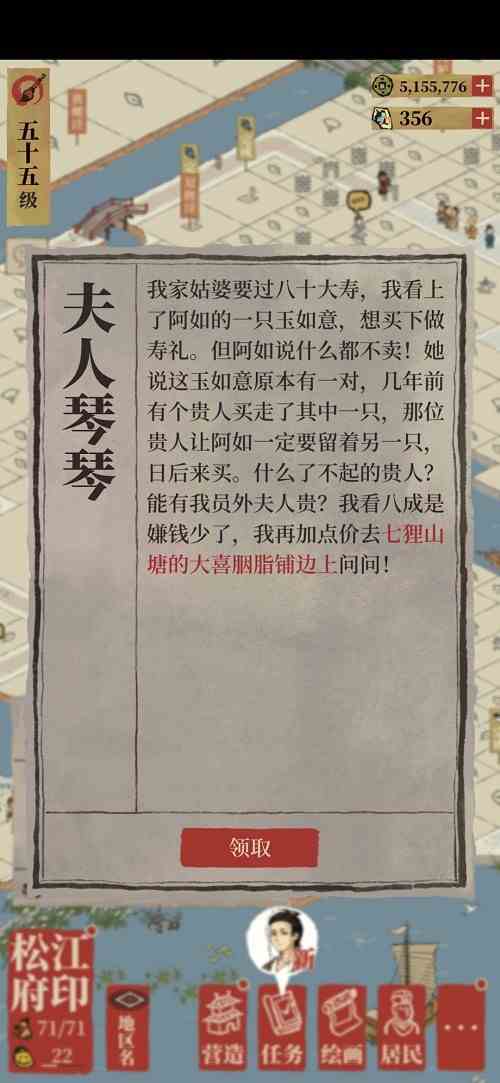 五十五级
5,155,776
356
夫人琴琴
我家姑婆要过八十大寿，我看上
了阿如的一只玉如意，想买下做
寿礼。但阿如说什么都不卖！她
说这玉如意原本有一对，几年前
有个贵人买走了其中一只，那位
贵人让阿如一定要留着另一只，
日后来买。什么了不起的贵人？
能有我员外夫人贵？我看八成是
嫌钱少了，我再加点价去七狸山
塘的大喜胭脂铺边上问问！
领取
新
松江府印
71/71
22
地区名
营造
任务
绘画
居民